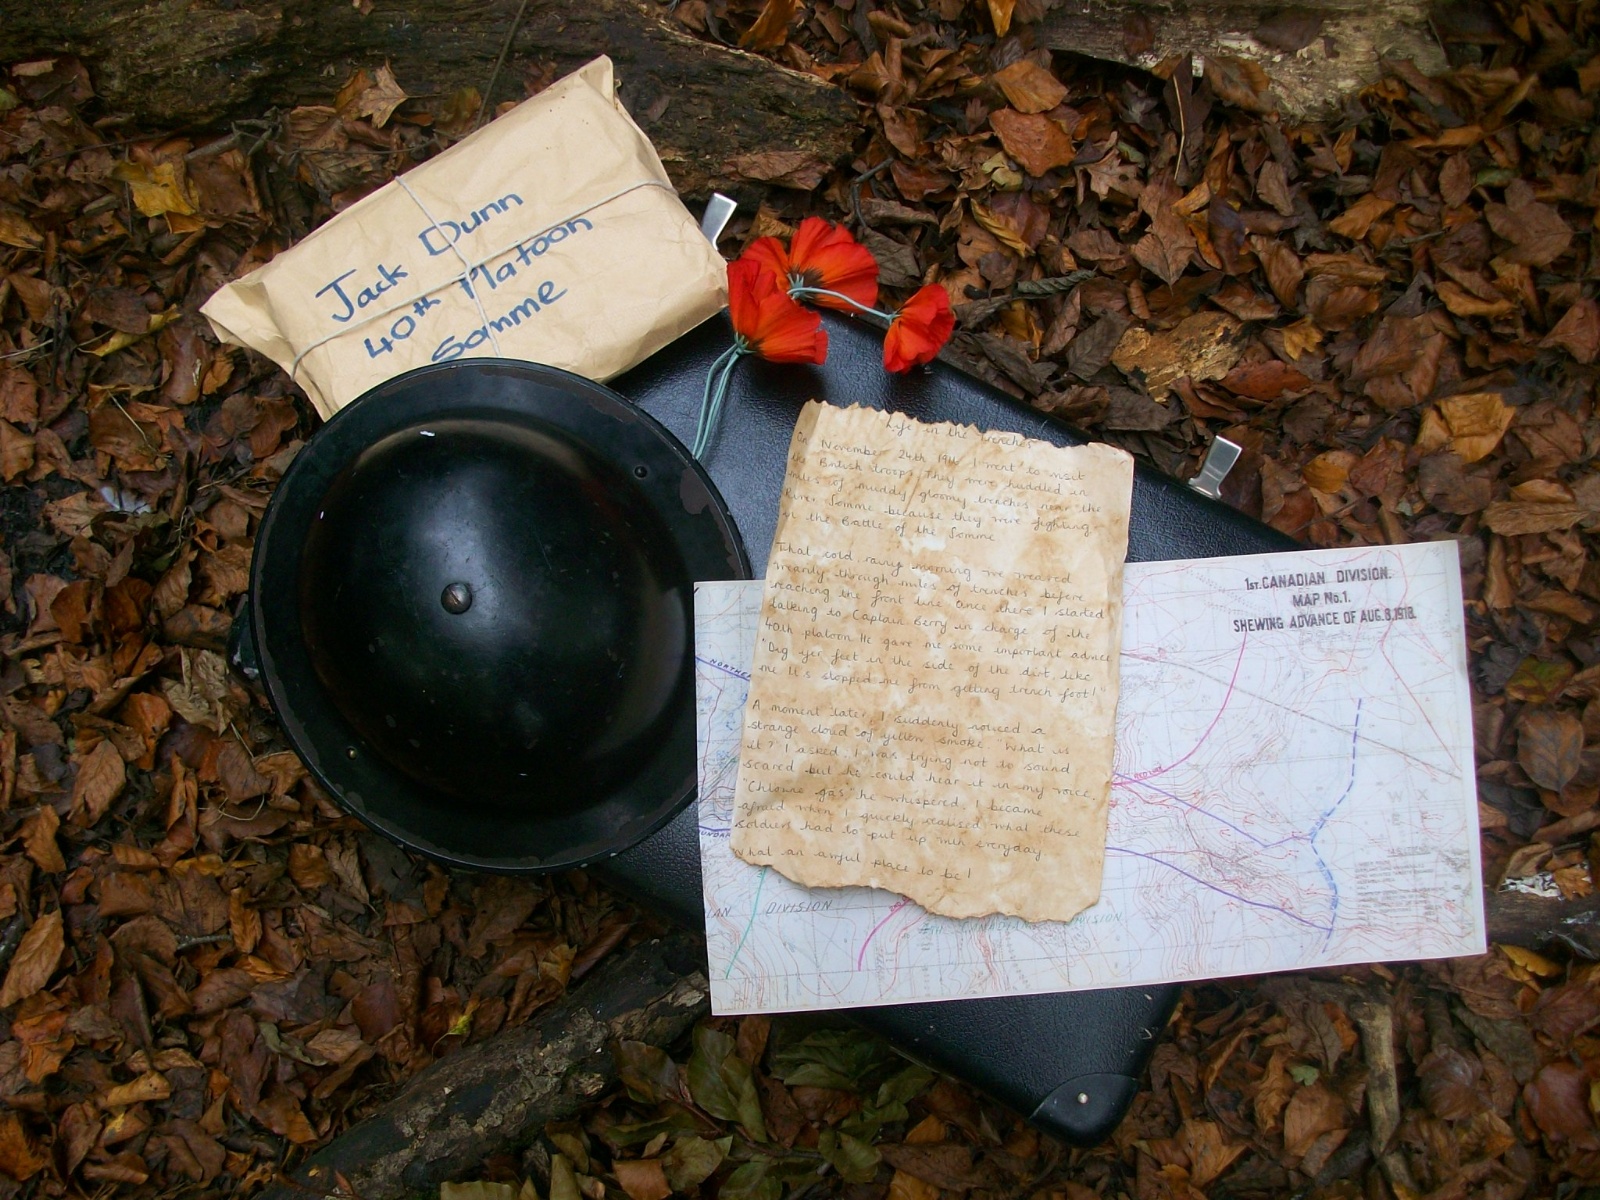 Jack Dunn
40th Platoon
Somme
Life in the trenches
On November 24th 1916 I went to visit
the British troops. They were huddled in
miles of muddy gloomy trenches near the
River Somme because they were fighting
in the Battle of the Somme
That cold rainy morning we weaved
wearily through miles of trenches before
reaching the front line. Once there I started
talking to Captain Berry in charge of the
40th platoon. He gave me some important advice
"Dig yer feet in the side of the dirt, like
me. It's stopped me from getting trench foot!"
A moment later, I suddenly noticed a
strange cloud of yellow smoke. "What is
it?" I asked. I was trying not to sound
scared but he could hear it in my voice.
"Chlorine gas" he whispered. I became
afraid when I quickly realised what these
soldiers had to put up with everyday
What an awful place to be!
1ST. CANADIAN DIVISION.
MAP No.1.
SHEWING ADVANCE OF AUG.8.1918.
NORTHE
RED LINE
UNDAR
IAN DIVISION
CANADIAN DIVISION